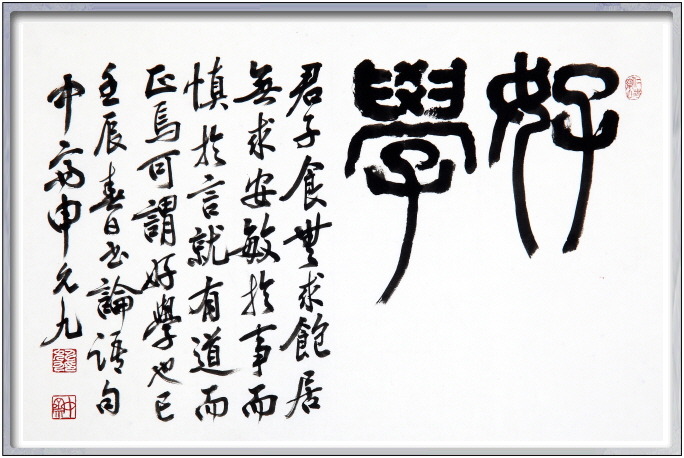 好學
君子食無求飽居
無求安敏於事而
慎於言就有道而
正焉可謂好學也已
壬辰春日書論語句
中齋申元九